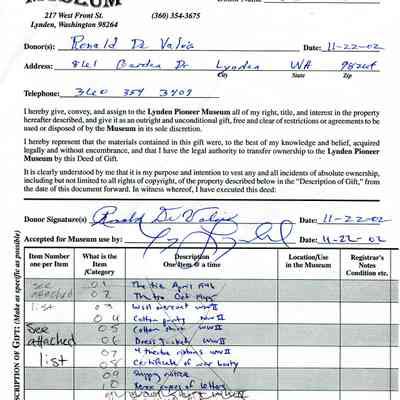 MUSEUM
217 West Front St. (360) 354-3675
Lynden, Washington 98264
Donor(s): Ronald De Valois Date: 11-22-02
Address: 861 Garden Dr Lynden WA 98264
City State Zip
Telephone: 360 354 3409
I hereby give, convey, and assign to the Lynden Pioneer Museum all of my right, title, and interest in the property
hereafter described, and give it as an outright and unconditional gift, free and clear of restrictions or agreements to be
used or disposed of by the Museum in its sole discretion.
I hereby represent that the materials contained in this gift were, to the best of my knowledge and belief, acquired
legally and without encumbrance, and that I have the legal authority to transfer ownership to the Lynden Pioneer
Museum by this Deed of Gift.
It is clearly understood by me that it is my purpose and intention to vest any and all incidents of absolute ownership,
including but not limited to all rights of copyright, of the property described below in the "Description of Gift," from the
date of this document forward. In witness whereof, I have executed this deed:
Donor Signature(s) Ronald De Valois Date: 11-22-02
Accepted for Museum use by: Date: 11-22-02
DESCRIPTION OF GIFT: (Make as specific at possible)
Item Number one per Item
What is the Item /Category
Description One Item at a time
Location/Use in the Museum
Registrar's Notes Condition etc.
see 01 April 1946
attached 02 Oct 1945
list 03 Wool overcoat WWII
04 Cotton pants WWII
see 05 Cotton shirt WWII
attached 06 Dress Jacket WWII
list 07 4 theatre ribbons WWII
08 Certificate of war booty
09 notice
10 copies of letters